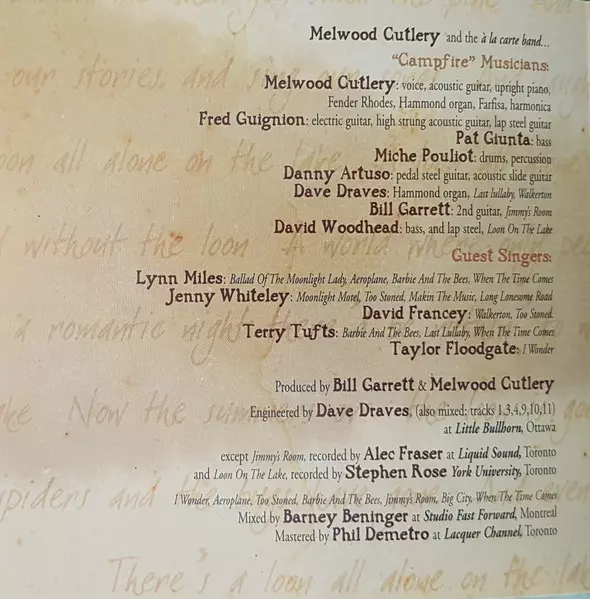 Melwood Cutlery and the à la carte band...
"Campfire" Musicians:
Melwood Cutlery: voice, acoustic guitar, upright piano,
Fender Rhodes, Hammond organ, Farfisa, harmonica
Fred Guignion: electric guitar, high strung acoustic guitar, lap steel guitar
Pat Giunta: bass
Miche Pouliot: drums, percussion
Danny Artuso: pedal steel guitar, acoustic slide guitar
Dave Draves: Hammond organ, Last lullaby, Walkerton
Bill Garrett: 2nd guitar, Jimmy's Room
David Woodhead: bass, and lap steel, Loon On The Lake
Guest Singers:
Lynn Miles: Ballad Of The Moonlight Lady, Aeroplane, Barbie And The Bees, When The Time Comes
Jenny Whiteley: Moonlight Motel, Too Stoned, Makin The Music, Long Lonesome Road
David Francey: Walkerton, Too Stoned
Terry Tufts: Barbie And The Bees, Last Lullaby, When The Time Comes
Taylor Floodgate: I Wonder
Produced by Bill Garrett & Melwood Cutlery
Engineered by Dave Draves, (also mixed; tracks 1,3,4,9,10,11)
at Little Bullhorn, Ottawa
except Jimmy's Room, recorded by Alec Fraser at Liquid Sound, Toronto
and Loon On The Lake, recorded by Stephen Rose York University, Toronto
I Wonder, Aeroplane, Too Stoned, Barbie And The Bees, Jimmy's Room, Big City, When The Time Comes
Mixed by Barney Beninger at Studio Fast Forward, Montreal
Mastered by Phil Demetro at Lacquer Channel, Toronto
our stories and sing
oon all alone on the lake
without the loon A world
a romantic night
ke Now the summer's
spiders and
There's a loon all alone on the lake